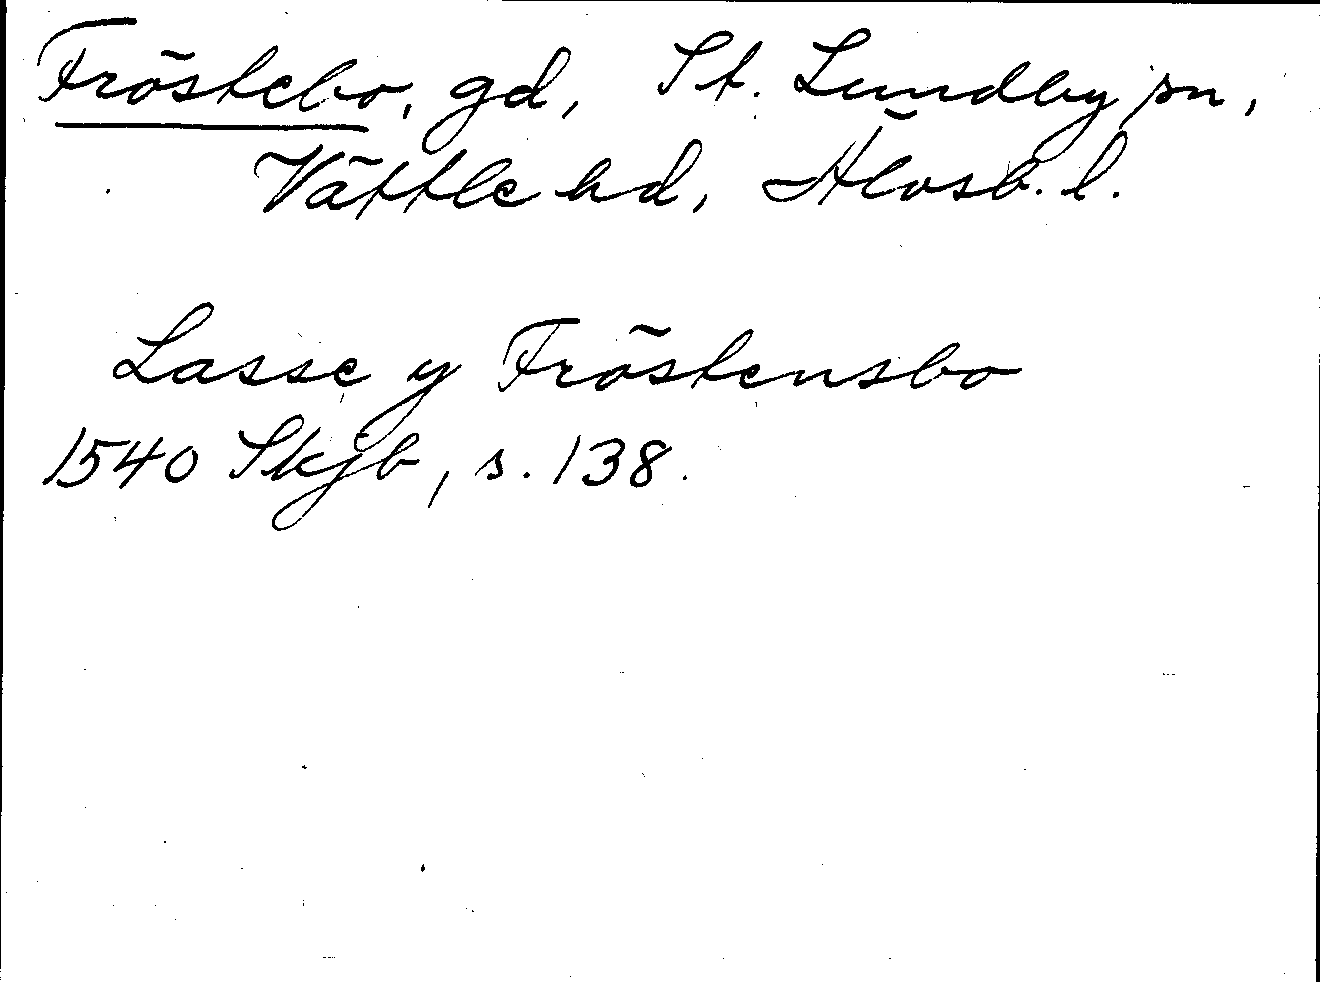 Fröstebo, gd, St. Lundby sn,
Vättle hd, Älvsb. l.
Lasse y Fröstensbo
1540 Skjb, s. 138.